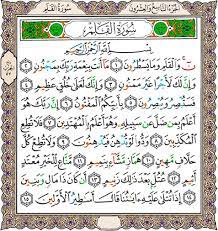 الجزء التاسع والعشرون سورة القلم
سُورَةُ القَلَمِ
بِسْمِ اللَّهِ الرَّحْمَٰنِ الرَّحِيمِ
نٓ وَٱلْقَلَمِ وَمَا يَسْطُرُونَ ١ مَآ أَنتَ بِنِعْمَةِ رَبِّكَ بِمَجْنُونٍ ٢
وَإِنَّ لَكَ لَأَجْرًا غَيْرَ مَمْنُونٍ ٣ وَإِنَّكَ لَعَلَىٰ خُلُقٍ عَظِيمٍ ٤
فَسَتُبْصِرُ وَيُبْصِرُونَ ٥ بِأَييِّكُمُ ٱلْمَفْتُونُ ٦ إِنَّ رَبَّكَ هُوَ أَعْلَمُ
بِمَن ضَلَّ عَن سَبِيلِهِۦ وَهُوَ أَعْلَمُ بِٱلْمُهْتَدِينَ ٧ فَلَا تُطِعِ
ٱلْمُكَذِّبِينَ ٨ وَدُّوا۟ لَوْ تُدْهِنُ فَيُدْهِنُونَ ٩ وَلَا تُطِعْ كُلَّ
حَلَّافٍ مَّهِينٍ ١٠ هَمَّازٍ مَّشَّآءٍۭ بِنَمِيمٍ ١١ مَّنَّاعٍ لِّلْخَيْرِ مُعْتَدٍ
أَثِيمٍ ١٢ عُتُلٍّۭ بَعْدَ ذَٰلِكَ زَنِيمٍ ١٣ أَن كَانَ ذَا مَالٍ وَبَنِينَ ١٤
إِذَا تُتْلَىٰ عَلَيْهِ ءَايَٰتُنَا قَالَ أَسَٰطِيرُ ٱلْأَوَّلِينَ ١٥